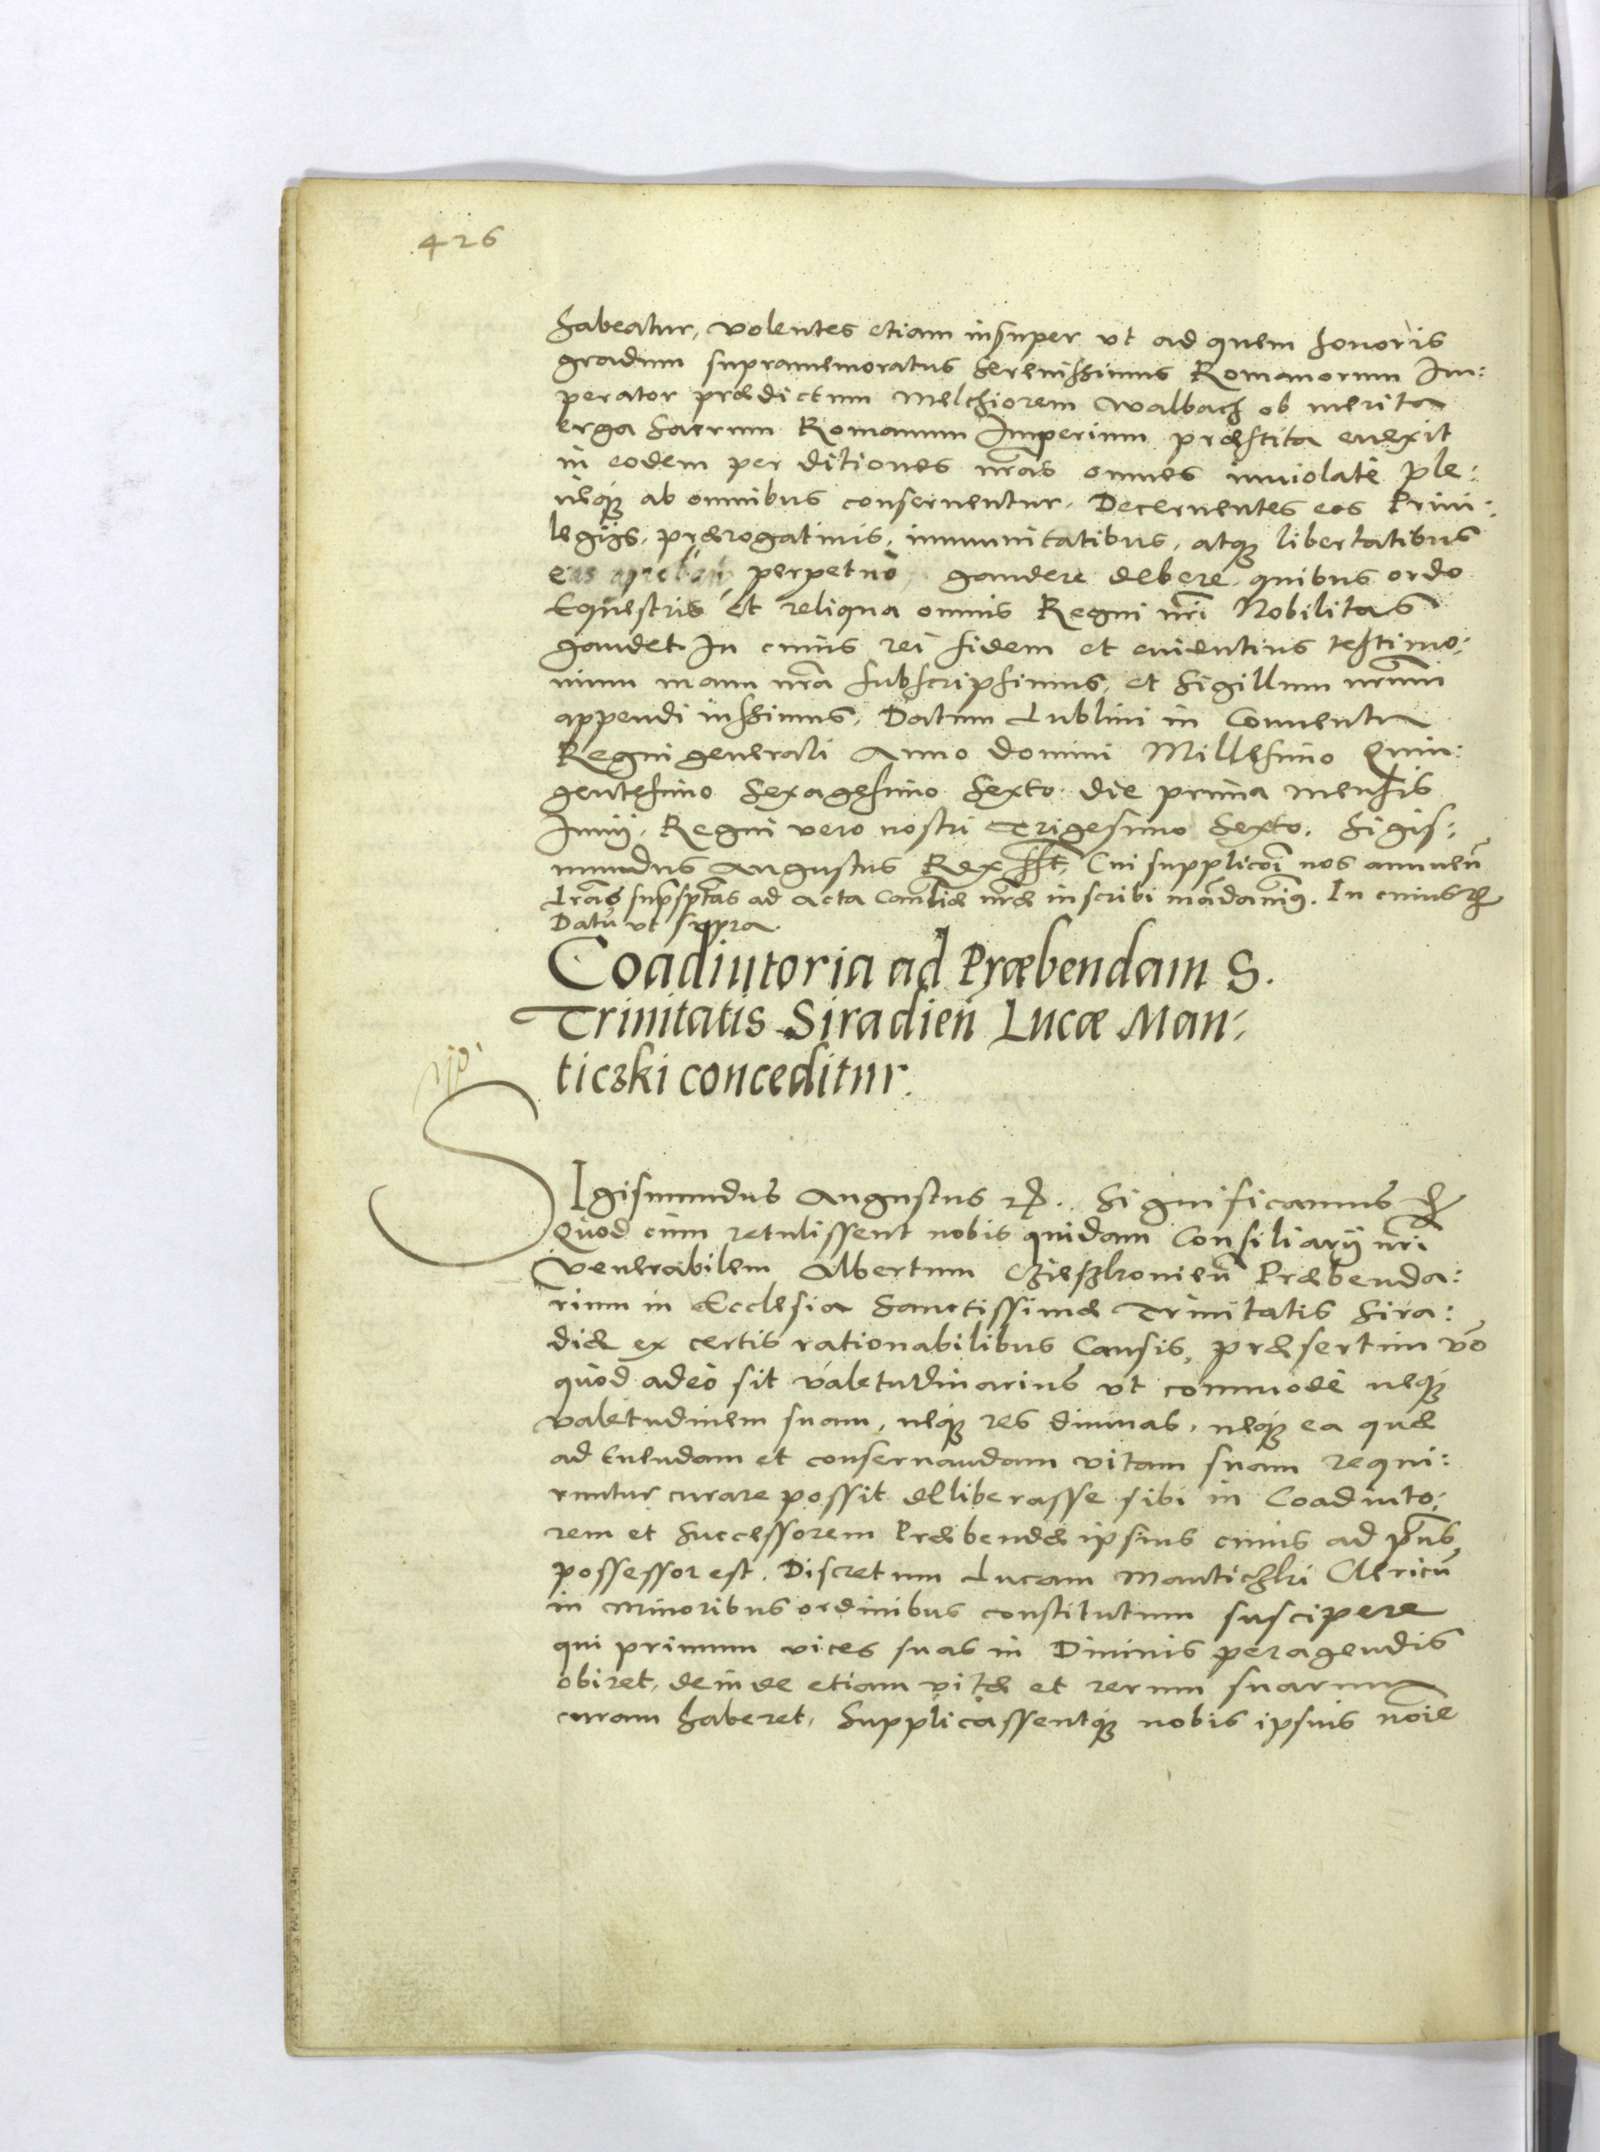 426
habeatur, volentes etiam insuper vt ad quem honoris
gradum supramemoratus Serenissimus Romanorum Im:
perator prædictum Melchiorem Walbach ob merita
erga Sacrum Romanum Imperium præstita euexit
in eodem per ditiones nr̄as omnes inuiolatè ple:
neq́ꝫ ab omnibus conseruentur. Decernentes eos Priui:
legijs, prærogatiuis, immunitatibus, atqꝫ libertatibus
perpetuò gaudere debere quibus ordo
Equestris et reliqua omnis Regni nr̄i Nobilitas
gaudet. In cuius rei fidem et euidentius testimo:
nium manu nr̄a subscripsimus, et Sigillum nr̄um
appendi iussimus. Datum Lublini in Conuentu
Regni generali Anno Domini Millesimo Quin:
gentesimo Sexagesimo Sexto die prima mensis
Junij. Regni vero nostri Trigesimo Sexto. Sigis:
mundus Augustus Rex sst. Cui supplicōi nos annuen̄
Lr̄as supsptas ad Acta Canliæ nr̄æ inscribi mādauimꝰ. In cuius rei
Datū vt supra.
Coadiutoria ad Præbendam S.
Trinitatis Siradień Lucæ Man:
ticzki conceditur.
SIgismundus Augustus etc. Significamus etc
Quod cùm retulissent nobis quidam Consiliarij nr̄i
Venerabilem Albertum Præbenda:
rium in Ecclesia Sanctissimæ Trinitatis Sira:
diæ ex certis rationabilibus Causis, præsertim vō
quòd adeò sit váletudinarius vt commodè neq́ꝫ
valetudinem suam, neq́ꝫ res diuinas, neq́ꝫ ea quæ
ad tuendam et conseruandam vitam suam requi:
runtur curare possit delliberasse sibi in Coadiuto:
rem et Successorem Præbendæ ipsius cuius ad pn̄s
possessor est. Discretum Lucam Mantichki Clericū
in Minoribus ordinibus constitutum suscipere
qui primum vices suas in Diuinis peragendis
obiret, deinde etiam vitæ et rerum suarum
curam haberet, Supplicassentq́ꝫ nobis ipsius noīe